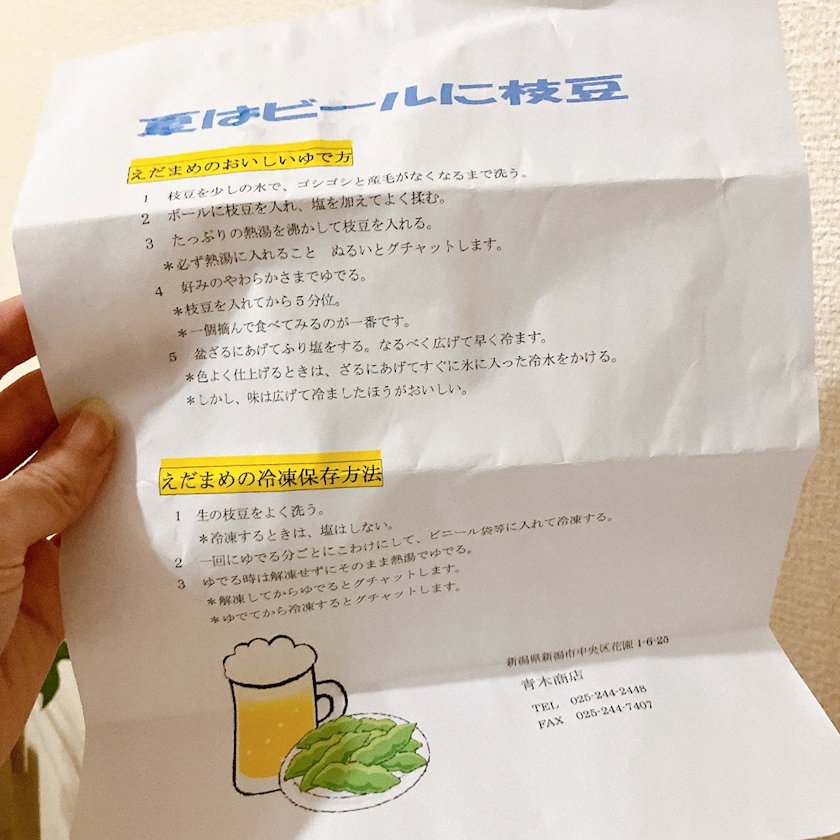 夏はビールに枝豆
えだまめのおいしいゆで方
1 枝豆を少しの水で、ゴシゴシと産毛がなくなるまで洗う。
2 ボールに枝豆を入れ、塩を加えてよく揉む。
3 たっぷりの熱湯を沸かして枝豆を入れる。
＊必ず熱湯に入れること ぬるいとグチャットします。
4 好みのやわらかさまでゆでる。
＊枝豆を入れてから５分位。
＊一個摘んで食べてみるのが一番です。
5 盆ざるにあげてふり塩をする。なるべく広げて早く冷ます。
＊色よく仕上げるときは、ざるにあげてすぐに氷に入った冷水をかける。
＊しかし、味は広げて冷ましたほうがおいしい。
えだまめの冷凍保存方法
1 生の枝豆をよく洗う。
＊冷凍するときは、塩はしない。
2 一回にゆでる分ごとにこわけにして、ビニール袋等に入れて冷凍する。
3 ゆでる時は解凍せずにそのまま熱湯でゆでる。
＊解凍してからゆでるとグチャットします。
＊ゆでてから冷凍するとグチャットします。
新潟県新潟市中央区花園 1-6-25
青木商店
TEL 025-244-2448
FAX 025-244-7407